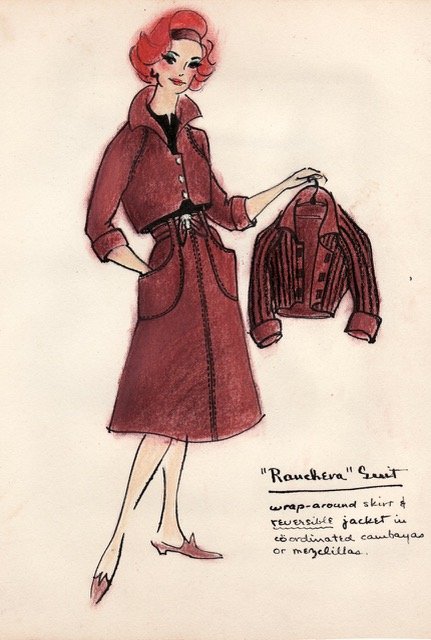 "Ranchera" Suit
wrap-around skirt &
reversible jacket in
coördinated cambayas
or mezclillas.